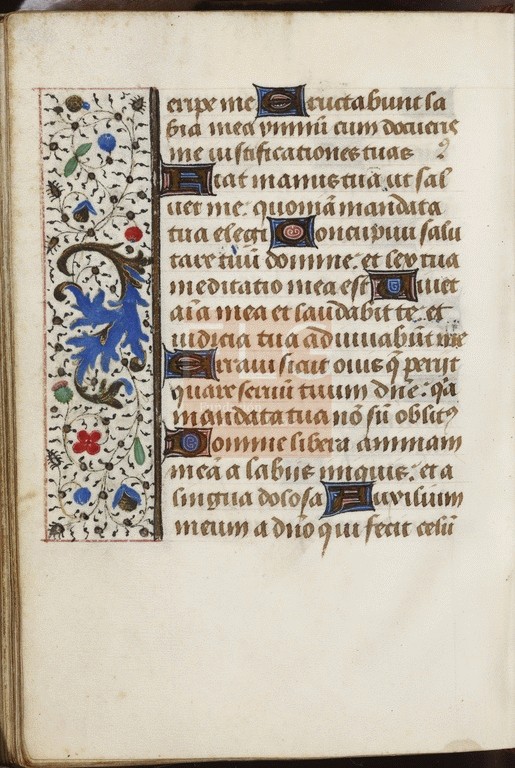 eripe me Eructabunt la
bia mea ymnū cum docueris
me iustificationes tuas
Fiat manus tua ut sal
uet me. quoniā mandata
tua elegi Concupiui salu
tare tuū domine. et lex tua
meditatio mea est Viuet
aīa mea et laudabit te. et
iudicia tua adiuuabūt me
Erraui sicut ouis q̄ perijt
quare seruū tuum dn̄e. qa
mandata tua nō sū oblitꝰ
Domine libera animam
meā a labijs iniquis. et a
lingua dolosa Auxilium
meum a dn̄o qui fecit celū